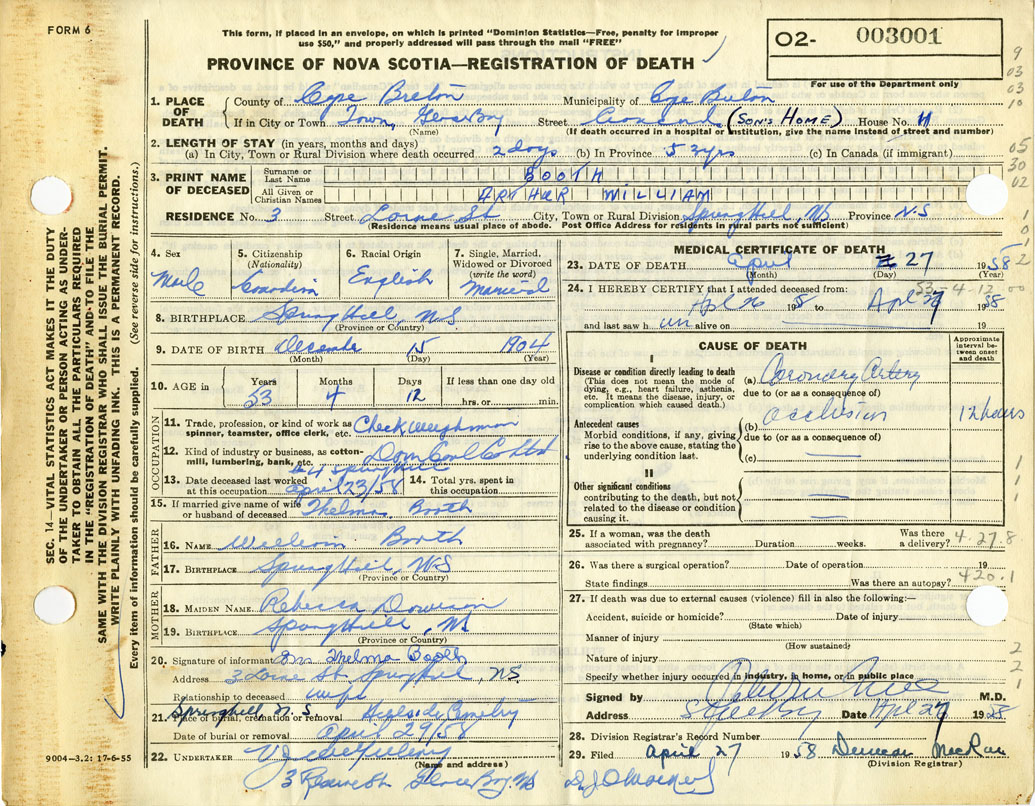 FORM 6
This form, if placed in an envelope, on which is printed "Dominion Statistics—Free, penalty for improper
use $50," and properly addressed will pass through the mail "FREE"
PROVINCE OF NOVA SCOTIA—REGISTRATION OF DEATH
02- 003001
For use of the Department only
1. PLACE OF DEATH
County of Cape Breton Municipality of Cape Breton
If in City or Town Town, Glace Bay Street (SON'S HOME) House No. 11
(Name) (If death occurred in a hospital or institution, give the name instead of street and number)
2. LENGTH OF STAY (in years, months and days)
(a) In City, Town or Rural Division where death occurred 2 days (b) In Province 53 yrs (c) In Canada (if immigrant)
3. PRINT NAME OF DECEASED
Surname or Last Name BOOTH
All Given or Christian Names ARTHUR WILLIAM
RESIDENCE No. 3 Street Lorne St City, Town or Rural Division Springhill, NS Province N.S
(Residence means usual place of abode. Post Office Address for residents in rural parts not sufficient)
4. Sex Male
5. Citizenship (Nationality) Canadian
6. Racial Origin English
7. Single, Married, Widowed or Divorced (write the word) Married
8. BIRTHPLACE Spring Hill, N.S.
(Province or Country)
9. DATE OF BIRTH December 15 1904
(Month) (Day) (Year)
10. AGE in Years 53 Months 4 Days 12 If less than one day old hrs. or min.
OCCUPATION
11. Trade, profession, or kind of work as spinner, teamster, office clerk, etc. Check weighman
12. Kind of industry or business, as cotton-mill, lumbering, bank, etc. Dom Coal Co Ltd
#4 Springhill
13. Date deceased last worked at this occupation April 23/58 14. Total yrs. spent in this occupation
15. If married give name of wife or husband of deceased Thelma Booth
FATHER
16. NAME William Booth
17. BIRTHPLACE Spring Hill, N.S
(Province or Country)
MOTHER
18. MAIDEN NAME Rebecca
19. BIRTHPLACE Spring Hill, NS
(Province or Country)
20. Signature of informant Mrs Thelma Booth
Address 3 Lorne St. Springhill, N.S.
Relationship to deceased wife
Springhill N.S
21. Place of burial, cremation or removal Hillside Cemetery
Date of burial or removal April 29/58
22. UNDERTAKER V J
(Name and address)
Glace Bay. NS
MEDICAL CERTIFICATE OF DEATH
23. DATE OF DEATH April 27 1958
(Month) (Day) (Year)
53-4-12
24. I HEREBY CERTIFY that I attended deceased from:
Apl 26 1958 to Apl 27 1958
and last saw h im alive on 19
CAUSE OF DEATH
Approximate interval between onset and death
I
Disease or condition directly leading to death
(This does not mean the mode of dying, e.g., heart failure, asthenia, etc. It means the disease, injury, or complication which caused death.)
(a) Coronary Artery
due to (or as a consequence of)
Antecedent causes
Morbid conditions, if any, giving rise to the above cause, stating the underlying condition last.
(b) Occlusion 12 hours
due to (or as a consequence of)
(c)
II
Other significant conditions
contributing to the death, but not related to the disease or condition causing it.
25. If a woman, was the death associated with pregnancy? Duration weeks. Was there a delivery?
4.27.8
26. Was there a surgical operation? Date of operation 19
420.1
State findings Was there an autopsy?
27. If death was due to external causes (violence) fill in also the following:—
Accident, suicide or homicide? Date of injury
(State which)
Manner of injury
(How sustained)
Nature of injury
Specify whether injury occurred in industry, in home, or in public place
Signed by M.D.
Address Date Apl 27 1958
28. Division Registrar's Record Number
29. Filed April 27 1958 Duncan MacRae
(Division Registrar)
SEC. 14—VITAL STATISTICS ACT MAKES IT THE DUTY
OF THE UNDERTAKER OR PERSON ACTING AS UNDER-
TAKER TO OBTAIN ALL THE PARTICULARS REQUIRED
IN THE "REGISTRATION OF DEATH" AND TO FILE THE
SAME WITH THE DIVISION REGISTRAR WHO SHALL ISSUE THE BURIAL PERMIT.
WRITE PLAINLY WITH UNFADING INK. THIS IS A PERMANENT RECORD.
Every item of information should be carefully supplied. (See reverse side for instructions.)
9004-3.2: 17-6-55